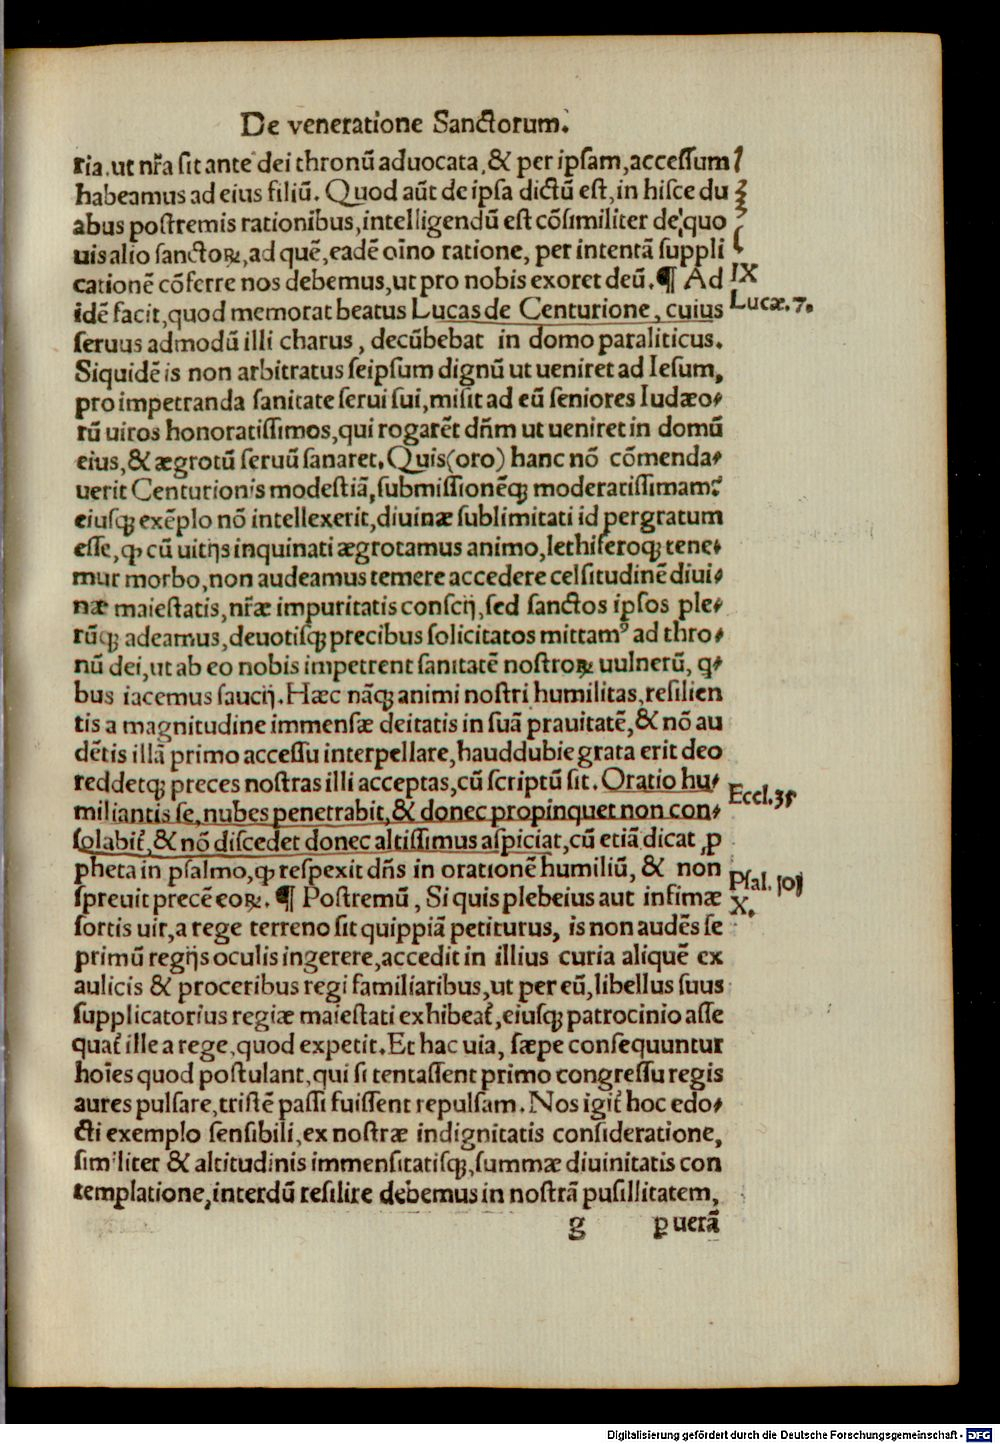 De veneratione Sanctorum.
ria, ut nr̃a sit ante dei thronũ aduocata, & per ipsam, accessum
habeamus ad eius filiũ. Quod aũt de ipsa dictũ est, in hisce du
abus postremis rationibus, intelligendũ est cõsimiliter de quo
uis alio sanctoꝝ, ad quẽ, eadẽ oĩno ratione, per intentã suppli
cationẽ cõferre nos debemus, ut pro nobis exoret deũ. ¶ Ad
IX
idẽ facit, quod memorat beatus Lucas de Centurione, cuius
Lucæ. 7.
seruus admodũ illi charus, decũbebat in domo paraliticus.
Siquidẽ is non arbitratus seipsum dignũ ut ueniret ad Iesum,
pro impetranda sanitate serui sui, misit ad eũ seniores Iudæo-
rũ uiros honoratissimos, qui rogarẽt dñm ut ueniret in domũ
eius, & ægrotũ seruũ sanaret. Quis (oro) hanc nõ cõmenda-
uerit Centurionis modestiã, submissionẽqꝫ moderatissimam?
eiusqꝫ exẽplo nõ intellexerit, diuinæ sublimitati id pergratum
esse, ꝙ cũ uitijs inquinati ægrotamus animo, lethiferoqꝫ tene-
mur morbo, non audeamus temere accedere celsitudinẽ diui-
næ maiestatis, nr̃æ impuritatis conscij, sed sanctos ipsos ple-
rũqꝫ adeamus, deuotisqꝫ precibus solicitatos mittamꝰ ad thro-
nũ dei, ut ab eo nobis impetrent sanitatẽ nostroꝝ uulnerũ, q-
bus iacemus saucij. Hæc nãqꝫ animi nostri humilitas, resilien
tis a magnitudine immensæ deitatis in suã prauitatẽ, & nõ au
dẽtis illã primo accessu interpellare, hauddubie grata erit deo
reddetqꝫ preces nostras illi acceptas, cũ scriptũ sit. Oratio hu-
Eccl. 35
miliantis se, nubes penetrabit, & donec propinquet non con-
solabit᷑, & nõ discedet donec altissimus aspiciat, cũ etiã dicat ꝓ
pheta in psalmo, ꝙ respexit dñs in orationẽ humiliũ, & non
Psal. 101
spreuit precẽ eoꝝ. ¶ Postremũ, Si quis plebeius aut infimæ
X.
sortis uir, a rege terreno sit quippiã petiturus, is non audẽs se
primũ regijs oculis ingerere, accedit in illius curia aliquẽ ex
aulicis & proceribus regi familiaribus, ut per eũ, libellus suus
supplicatorius regiæ maiestati exhibeat᷑, eiusqꝫ patrocinio asse
quat᷑ ille a rege, quod expetit. Et hac uia, sæpe consequuntur
hoĩes quod postulant, qui si tentassent primo congressu regis
aures pulsare, tristẽ passi fuissent repulsam. Nos igit᷑ hoc edo-
cti exemplo sensibili, ex nostræ indignitatis consideratione,
similiter & altitudinis immensitatisqꝫ, summæ diuinitatis con
templatione, interdũ resilire debemus in nostrã pusillitatem,
g ꝑuerã
Digitalisierung gefördert durch die Deutsche Forschungsgemeinschaft - DFG